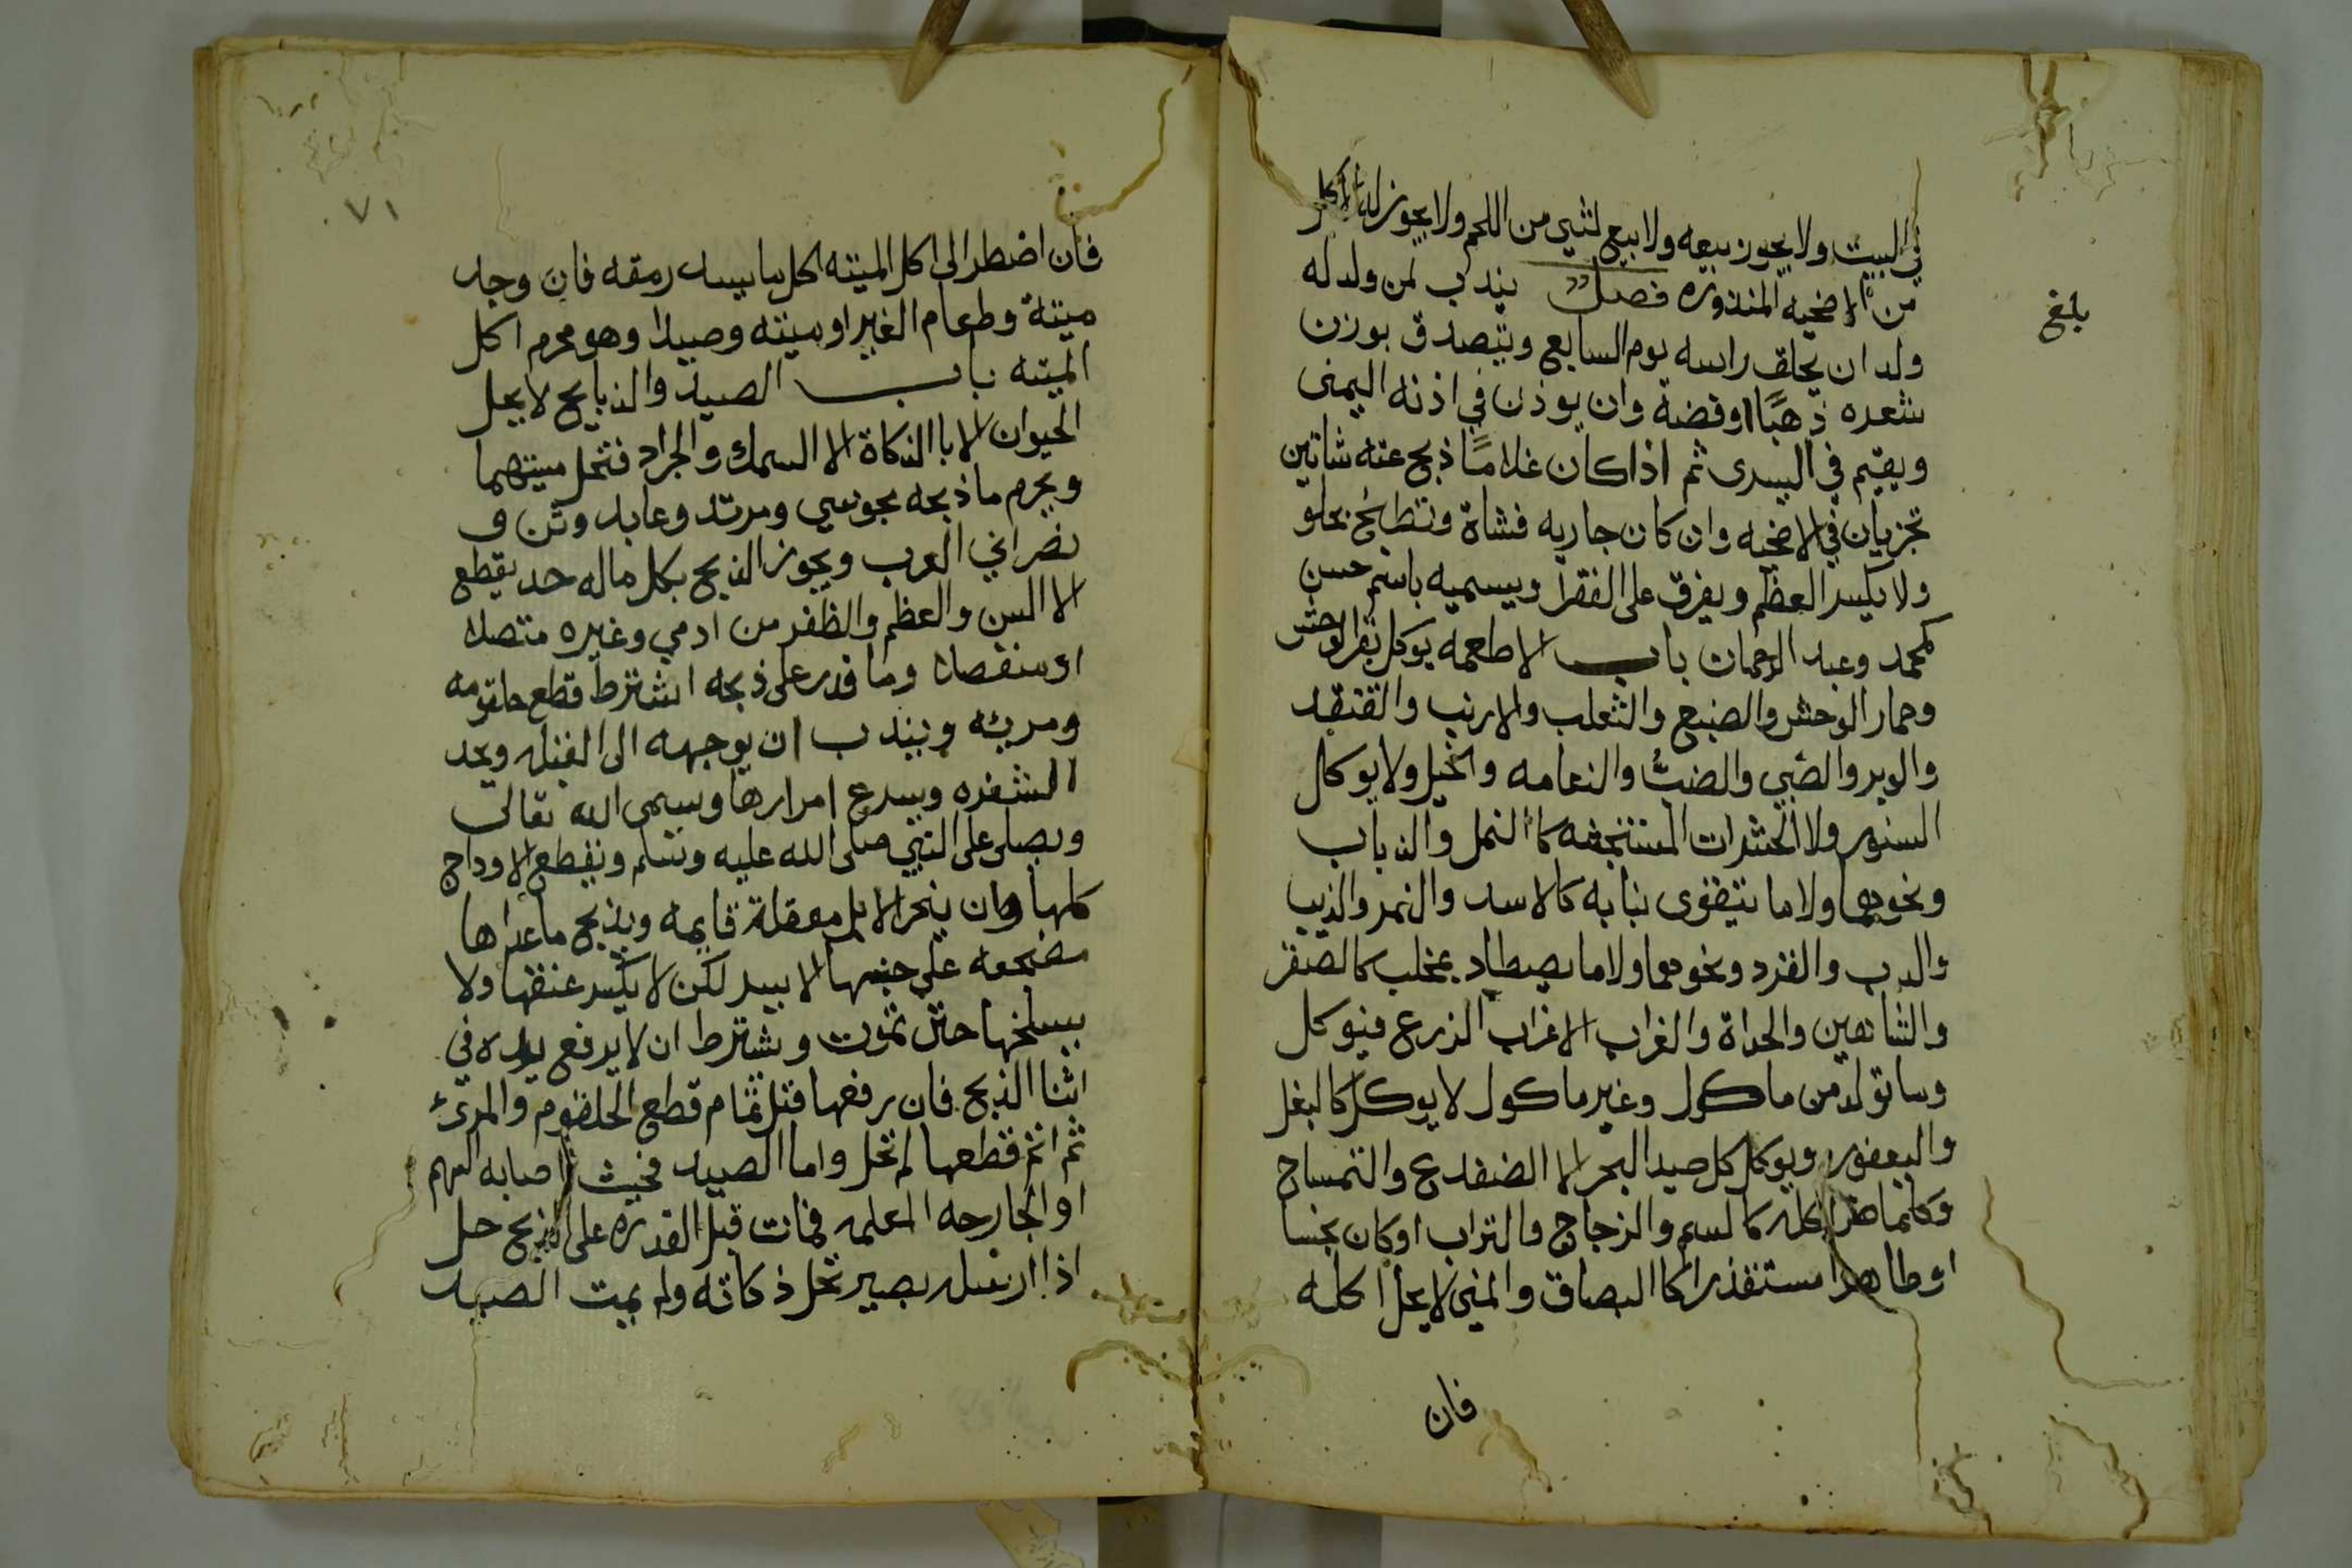 في البيت ولا يجوز بيعه ولا بيع لشي من اللحم ولا يجوز له الاكل
من الاضحيه المنذوره فصل يندب لمن ولد له
ولد ان يحلق راسه يوم السابع ويتصدق بوزن
شعره ذهبًا او فضة وان يوذن في اذنه اليمنى
ويقيم في اليسرى ثم اذا كان غلامًا ذبح عنه شاتين
تجزيان في الاضحيه وان كان جاريه فشاة وتطبخ بحلو
ولا يكسر العظم ويفرق على الفقرا ويسميه باسم حسن
كمحمد وعبد الرحمان باب الاطعمه يوكل بقر الوحش
وحمار الوحش والضبع والثعلب والارنب والقنقد
والوبر والضبي والضبُّ والنعامه والخيل ولا يوكل
السنور ولا الحشرات المستخبثه كا النمل والذباب
ونحوهما ولا ما يتقوى بنابه كالاسد والنمر والذيب
والدب والقرد ونحوهما ولا ما يصطاد بمخلب كالصقر
والشاهين والحداة والغراب الا غراب الزرع فيوكل
وما تولد من ماكول وغير ماكول لا يوكل كالبغل
واليعفور ويوكل كل صيد البحر الا الضفدع والتمساح
وكلما ضر اكله كالسم والزجاج والتراب او كان نجسا
او طاهرا مستقذرا كا البصاق والمني لا يحل اكله
فان
بلغ
٧١
فان اضطر الى اكل الميته اكل ما يسد رمقه فان وجد
ميتة وطعام الغير او ميته وصيدا وهو محرم اكل
الميته باب الصيد والذبايح لا يحل
الحيوان الا با الذكاة الا السمك والجراد فتحل ميتهما
ويحرم ما ذبحه مجوسي ومرتد وعابد وثن و
نصراني العرب ويجوز الذبح بكل ماله حد يقطع
الا السن والعظم والظفر من ادمي وغيره متصلا
او منفصلا وما قدر على ذبحه اشترط قطع حلقومه
ومريه ويندب ان يوجهه الى القبله ويحد
الشفره ويسرع امرارها ويسمى الله تعالى
ويصلي على النبي صلى الله عليه وسلم ويقطع الاوداج
كلها وان ينحر الابل معقلة قايمه ويذبح ما عداها
مضجعه على جنبها الايسر لكن لا يكسر عنقها ولا
يسلخها حتى تموت ويشترط ان لا يرفع يده في
اثنا الذبح فان رفعها قبل تمام قطع الحلقوم والمرئ
ثم اتم قطعها لم تحل واما الصيد فحيث اصابه السهم
او الجارحه المعلمه فمات قبل القدره على الذبح حل
اذا ارسله بصير تحل ذكاته ولم يمت الصيد